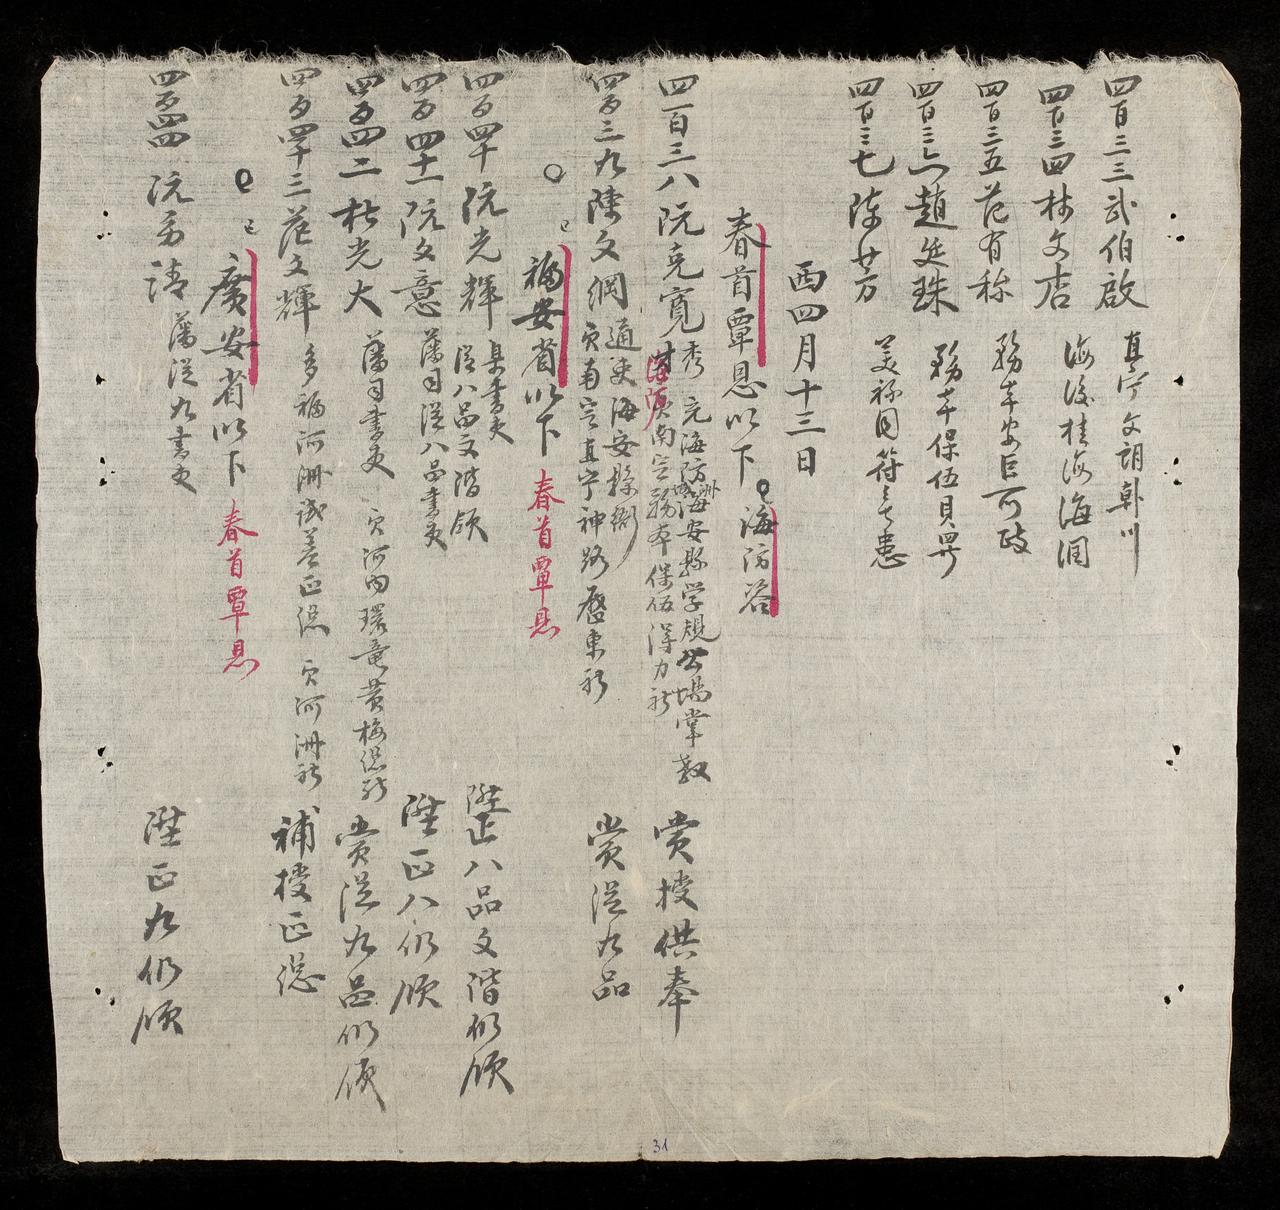 四百三三武伯啟 真寧文朗斡川
四百三四林文店 海後桂海海潤
四百三五范有称 務本安巨可政
四百三六趙廷珠 務本保伍貝
四百三七陳廿万 美祿同符
西四月十三日
春首覃恩以下 海防
四百三八阮克寬 秀 充海防海安縣学規場掌教 海防 南定務本保伍 賞授供奉
四百三九陳文綱 通吏海安縣衙 貫南定真寧神路 賞從九品
福安省以下 春首覃恩
四百四十阮光輝 臬書吏 從八品文階領 陞正八品文階仍領
四百四十一阮文意 藩司從八品書吏 陞正八仍領
四百四二杜光大 藩司書吏 貫河內環竜黄梅 賞從九品仍領
四百四十三范文輝 多福河洲誠善正總 貫河洲 補授正總
廣安省以下 春首覃恩
四百四四阮 請 藩從九書吏 陞正九仍領
31